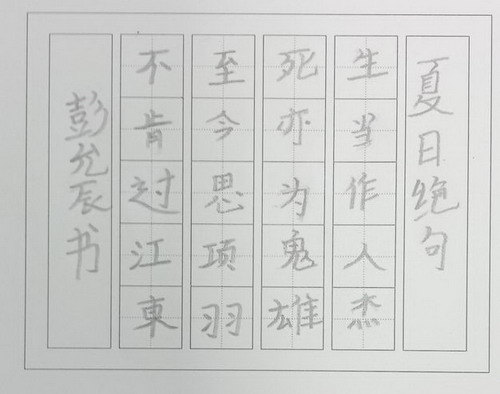 夏日绝句
生当作人杰
死亦为鬼雄
至今思项羽
不肯过江東
彭允辰书